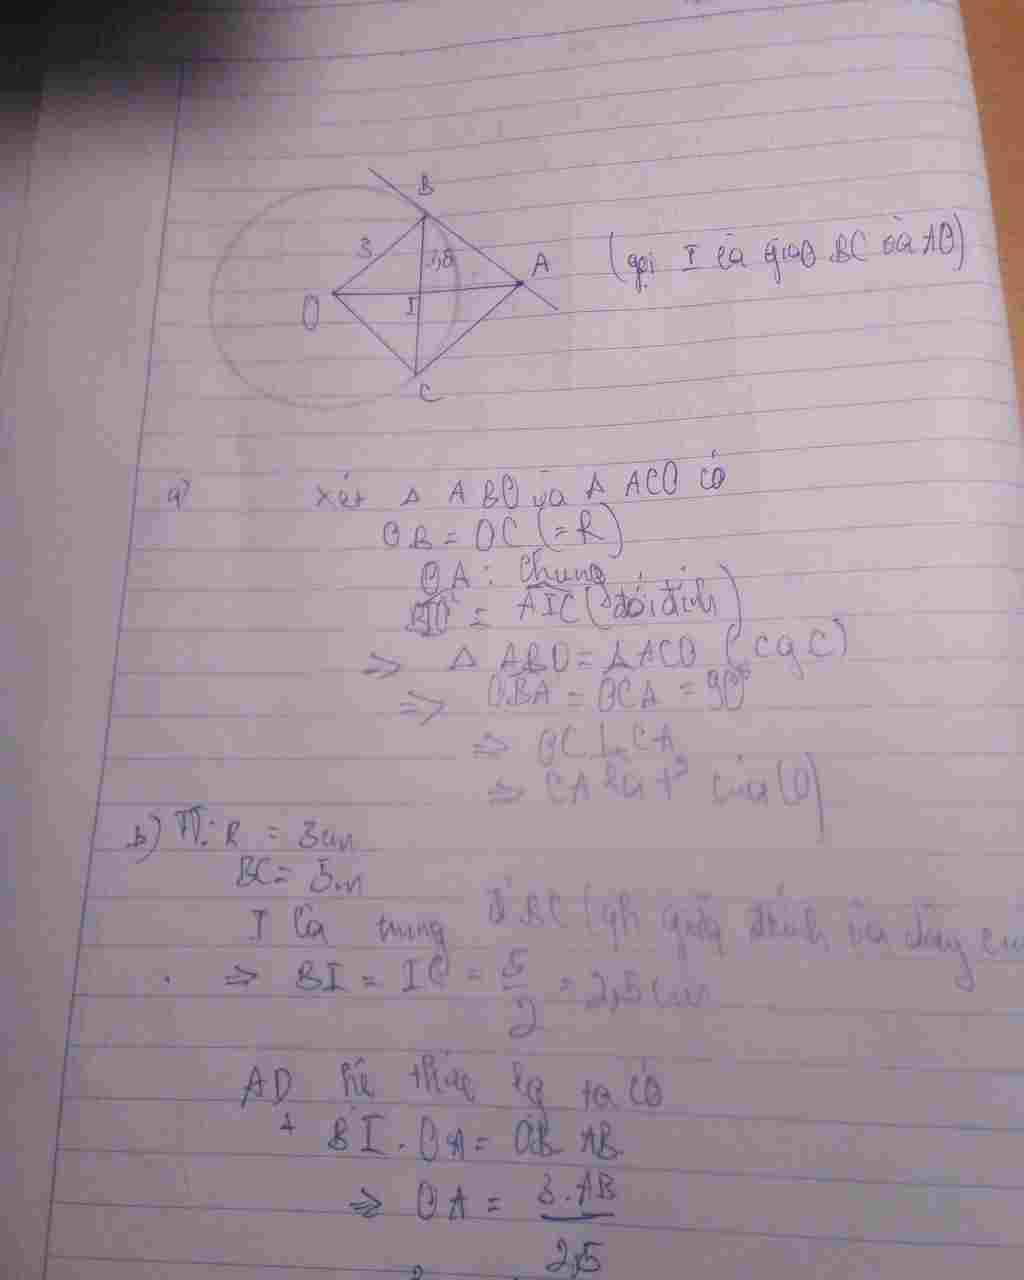 B
3
A
O
I
C
(gọi I là giao BC và AO)
a)
xét Δ ABO và Δ ACO có
OB = OC (= R)
OA : chung
= AIC (đối đỉnh)
=> Δ ABO = Δ ACO (cgc)
=> OBA = OCA = 90°
=> OC ⊥ CA
=> CA là t² của (O)
b) TT: R = 3cm
BC = 5cm
I là trung đ² BC (qh giữa đkính và dây
=> BI = IC = 5/2 = 2,5cm
AD hệ thức lg ta có
+ BI . OA = OB . AB
=> OA = 3.AB/2,5